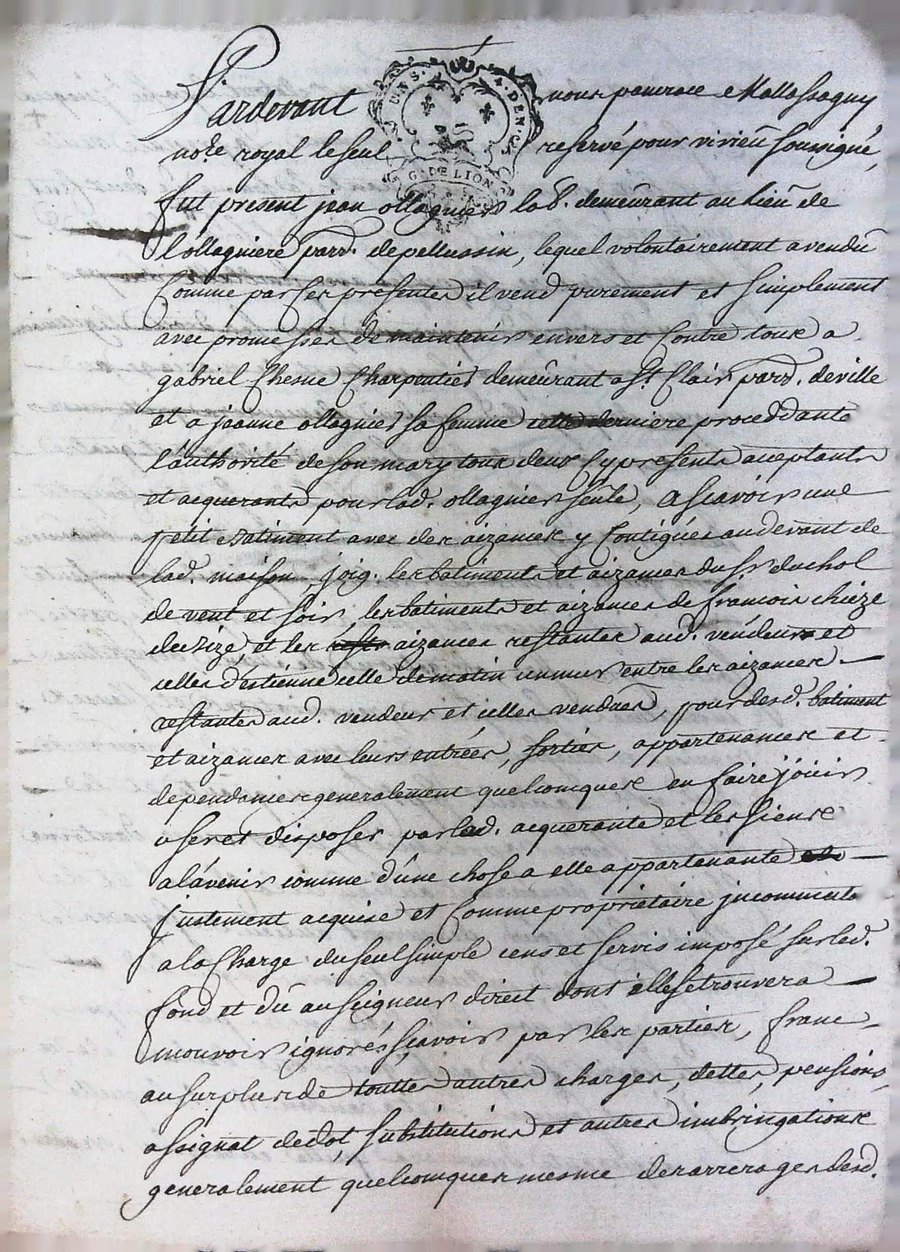 Pardevant nous pancrace Mallassagny
no.re royal le seul reservé pour virieu soussigné,
G. DE LION
fut present jean ollagnier lab.r demeurant au lieu de
l'ollagniere parr. de pellussin, lequel volontairement a vendu
comme par ses presentes il vend purement et simplement
avec promesses de maintenir envers et contre tous a
gabriel Chesne Charpentier demeurant a S.t Clair parr. de ville
et a jeanne ollagnier sa femme cette derniere proceddante
l'authorité de son mary tous deux cy presents aceptants
et acquerants pour lad. ollagnier seule, a scavoir une
petit batiment avec des aizances y contigues au devant de
lad. maison, joig. les batiments et aizances du s.r duchol
de vent et soir, les batiments et aizances de francois chieze
de bize, et les aizances restantes aud. vendeur et
celles d'estienne celle de matin un mur entre les aizances
restantes aud. vendeur et celles vendues, pour desd. batiment
et aizances avec leurs entrées, sorties, appartenances et
dependances generalement quelconques en faire jouir
user et disposer par lad. acquerante et les siens
a l'avenir comme d'une chose a elle appartenante
justement acquise et comme propriétaire jncommuta
a la Charge du seul simple cens et servis imposé sur led.
fond et dû au seigneur direct dont il se trouvera
mouvoir ignorés scavoir par les parties, franc
au surplus de touttes autres charges, dettes, pensions,
assignat de dot, substitutions et autres imbringations
generalement quelconques mesme des arrerages desd.